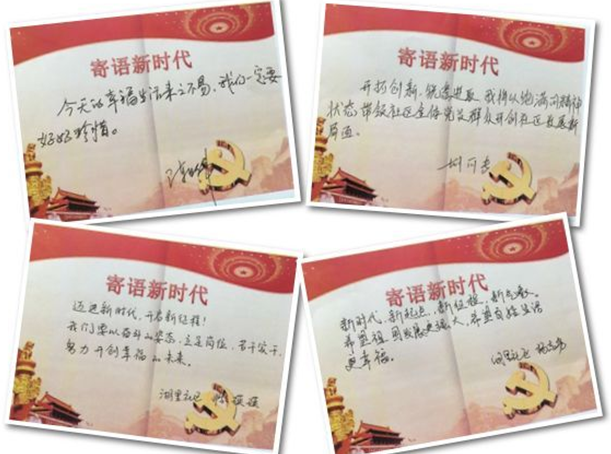 寄语新时代
今天的幸福生活来之不易，我们一定要
好好珍惜。
寄语新时代
开拓创新，锐意进取，我将以饱满的精神
状态带领社区全体党员群众开创社区发展新
局面。
寄语新时代
迈进新时代，开启新征程！
我们要以奋斗的姿态，立足岗位，苦干实干，
努力开创幸福的未来。
湖里社区
寄语新时代
新时代、新起点、新征程、新气象。
希望祖国发展更强大，希望百姓生活
更幸福。
湖里社区